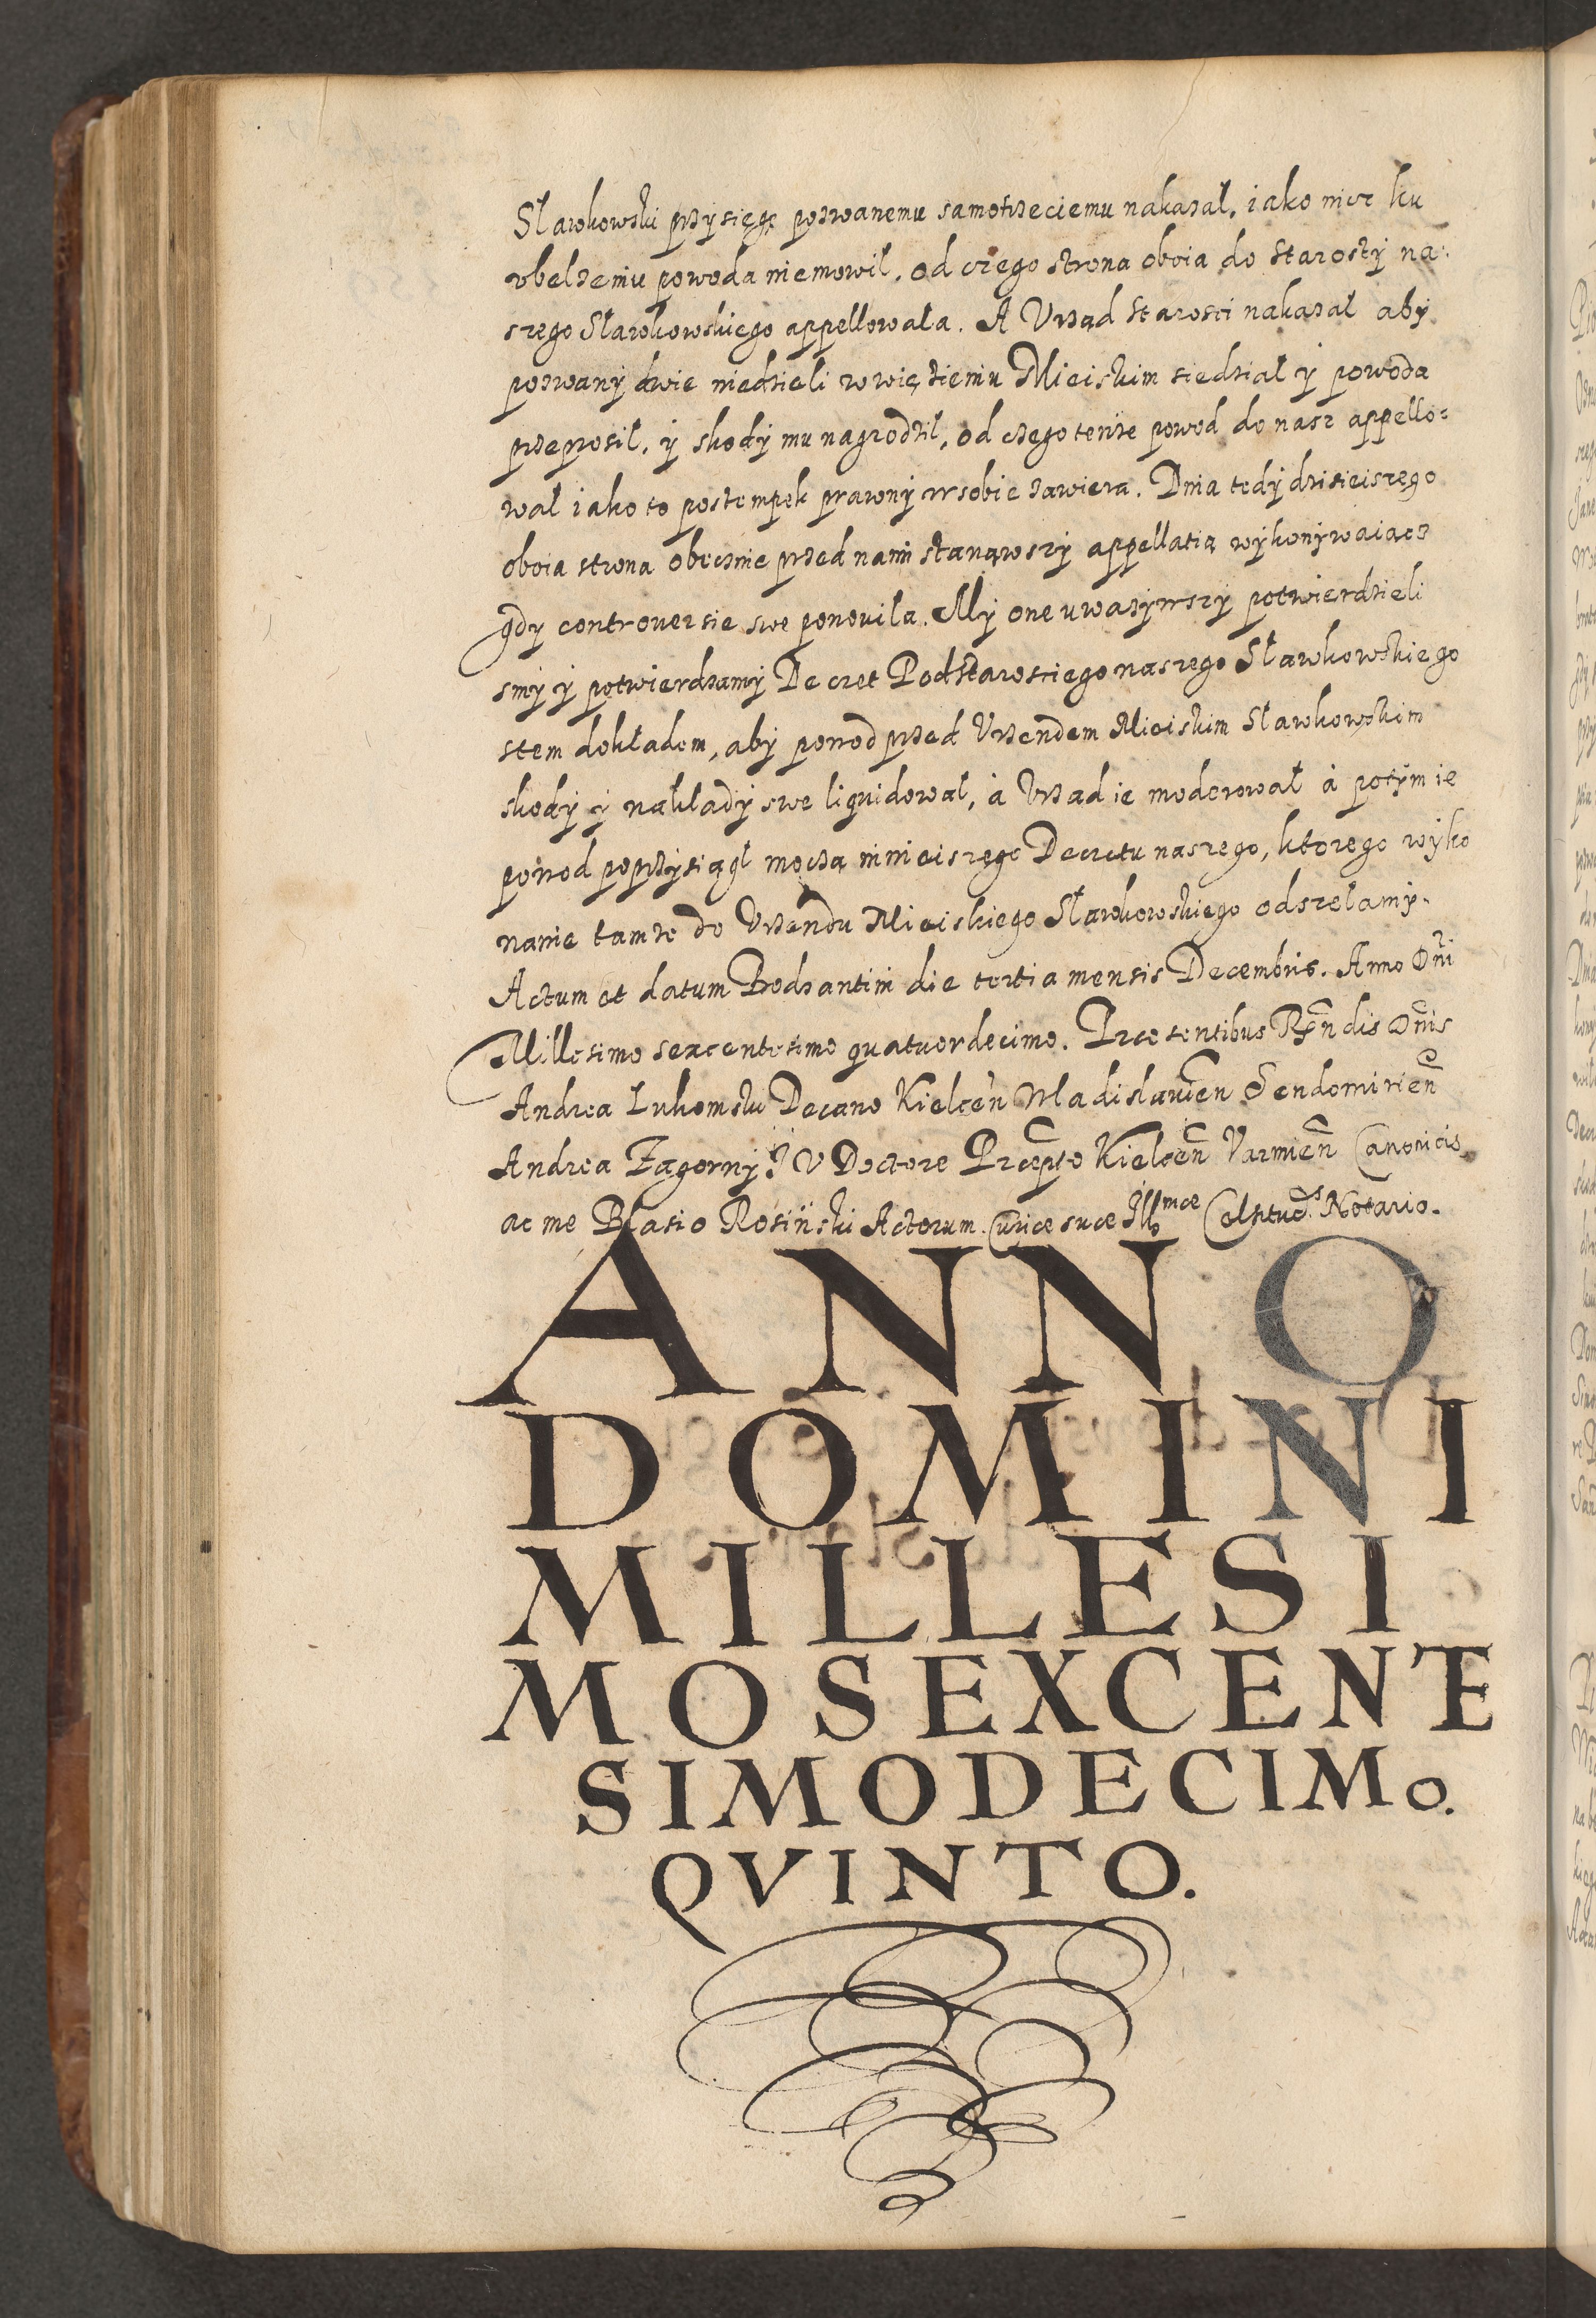 Sławkowski przysięgę pozwanemu samotrzeciemu nakazał, iako nicz ku
vbelzeniu powoda niemowił, od czego strona oboia do Starosty na:
szego Sławkowskiego appellowała. A Vrząd Starosci nakazał aby
pozwany dwie niedzieli w więzieniu Mieiskim siedział y powoda
przeprosił, y skody mu nagrodził, od czego tenże powod do nasz appello=
wał iako to postempek prawny w sobie zawiera. Dnia tedy dzisieiszego
oboia strona obecznie przed nami stanąwszy appellatią wykonywaiacz
gdy controuersie swe ponouiła. My one uwazywszy potwierdzieli
smy y potwierdzamy Decret Podstarosciego naszego Sławkowskiego
stem dokładem, aby powod przed Vrzendem Mieiskim Sławkowskim
skody y nakłady swe liquidował, à Vrząd ie moderował à potym ie
powod poprzysiągł mocżą ninieiszego Decretu naszego, ktorego wyko
nanie tamże do Vrzendu Mieiskiego Sławkowskiego odszełamy.
Actum et datum Bodzantini die tertia mensis Decembris. Anno Dni
Millesimo sexcentesimo quatuordecimo. Præsentibus Rndis Dnis
Andrea Lukomski Decano Kielcen Wladislauien Sendomirien
Andrea Zagorny I V Doctore Præpto Kielcen Varmien Canonicis
ac me Blasio Rosiński Actorum Curiæ suæ Illmæ Celsitud. Notario.
ANNO
DOMINI
MILLESI
MOSEXCENTE
SIMODECIMo.
QVINTO.